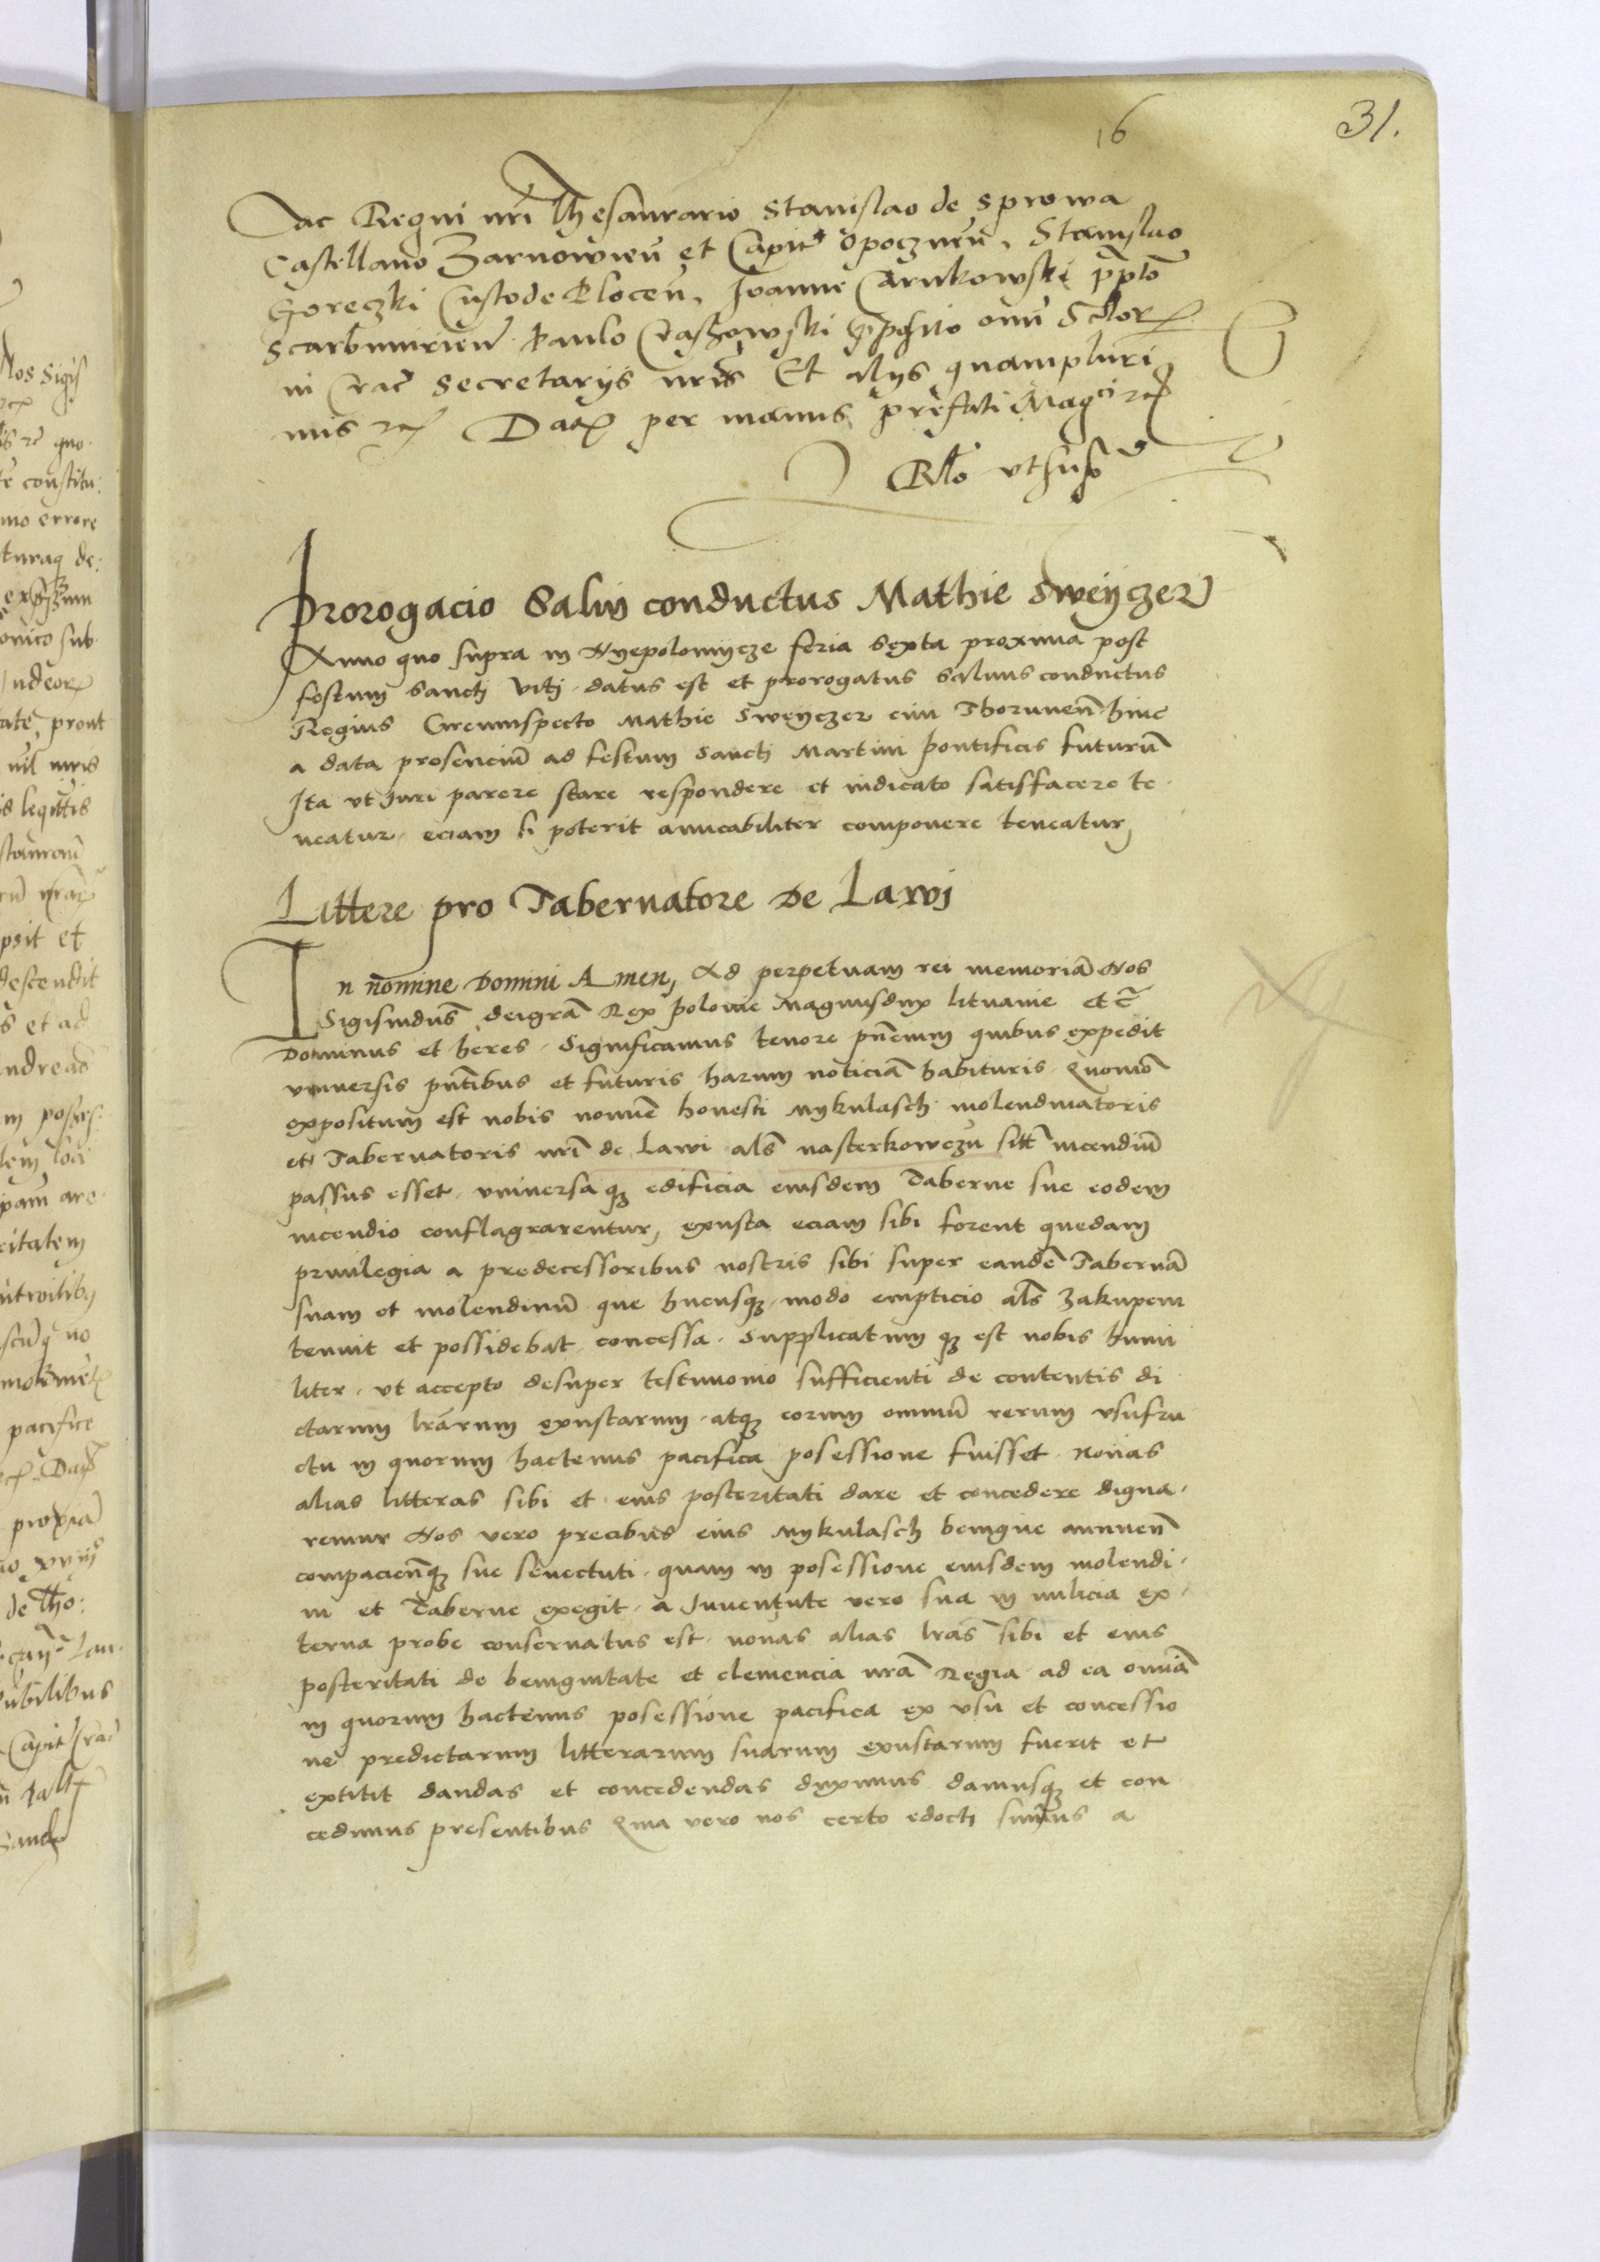 16
31.
Ac Regni nri Thesaurario Stanislao de Sprowa
Castellano Zarnowien et Capit Opocznen, Stanislao
Goreczki Custode Plocen, Joanne Carnkowski ppto
Scarbimirien Paulo Pposito omn Sctor
in Crac Secretarijs nris Et alijs quampluri
mis Dat per manus prefati Magci
Rlo utsup
Prorogacio Salvi conductus Mathie Sweyczer
Anno quo supra in Nyepolomycze feria sexta proxima post
festum Sancti Viti datus est et prorogatus Salvus conductus
Regius Circumspecto Mathie Sweyczer civi Thorunen hinc
a data presenciu ad festum Sancti Martini pontificis futuru
Ita ut Juri parere stare respondere et iudicato satisfacere te
neatur, eciam si poterit amicabiliter componere teneatur,
Littere pro Tabernatore De Lawi
In nomine Domini Amen, Ad perpetuam rei memoria Nos
Sigismdus deigra Rex Polonie Magnusdux lituanie etc
Dominus et heres. Significamus tenore pntium quibus expedit
universis pntibus et futuris harum noticia habituris Quomo
expositum est nobis nomine honesti Mykulasch molendinatoris
et Tabernatoris nri de Lawi als nasterkowczu sibi incendiu
passus esset, universaq edificia eiusdem Taberne sue eodem
incendio conflagrarentur, exusta eciam sibi forent quedam
privilegia a predecessoribus nostris sibi super eande Taberna
suam et molendinu que hucusq modo empticio als Zakupem
tenuit et possidebat, concessa. Supplicatumq est nobis humi
liter, ut accepto desuper testimonio sufficienti de contentis di
ctarum lrarum exustarum, atq eorum omniu rerum usufru
ctu in quorum hactenus pacifica posessione fuisset Novas
alias litteras sibi et eius posteritati dare et concedere digna
remur Nos vero precibus eius Mykulasch benigne annuen
compacienq sue senectuti, quam in posessione eiusdem molendi
ni et Taberne exegit, a Juventute vero sua in milicia ex
terna probe conservatus est, novas alias lras sibi et eius
posteritati de benignitate et clemencia nra Regia ad ea omia
in quorum hactenus posessione pacifica ex usu et concessio
ne predictarum litterarum suarum exustarum fuerit et
extitit dandas et concedendas duximus damusq et con
cedimus presentibus Quia vero nos certo edocti sumus a